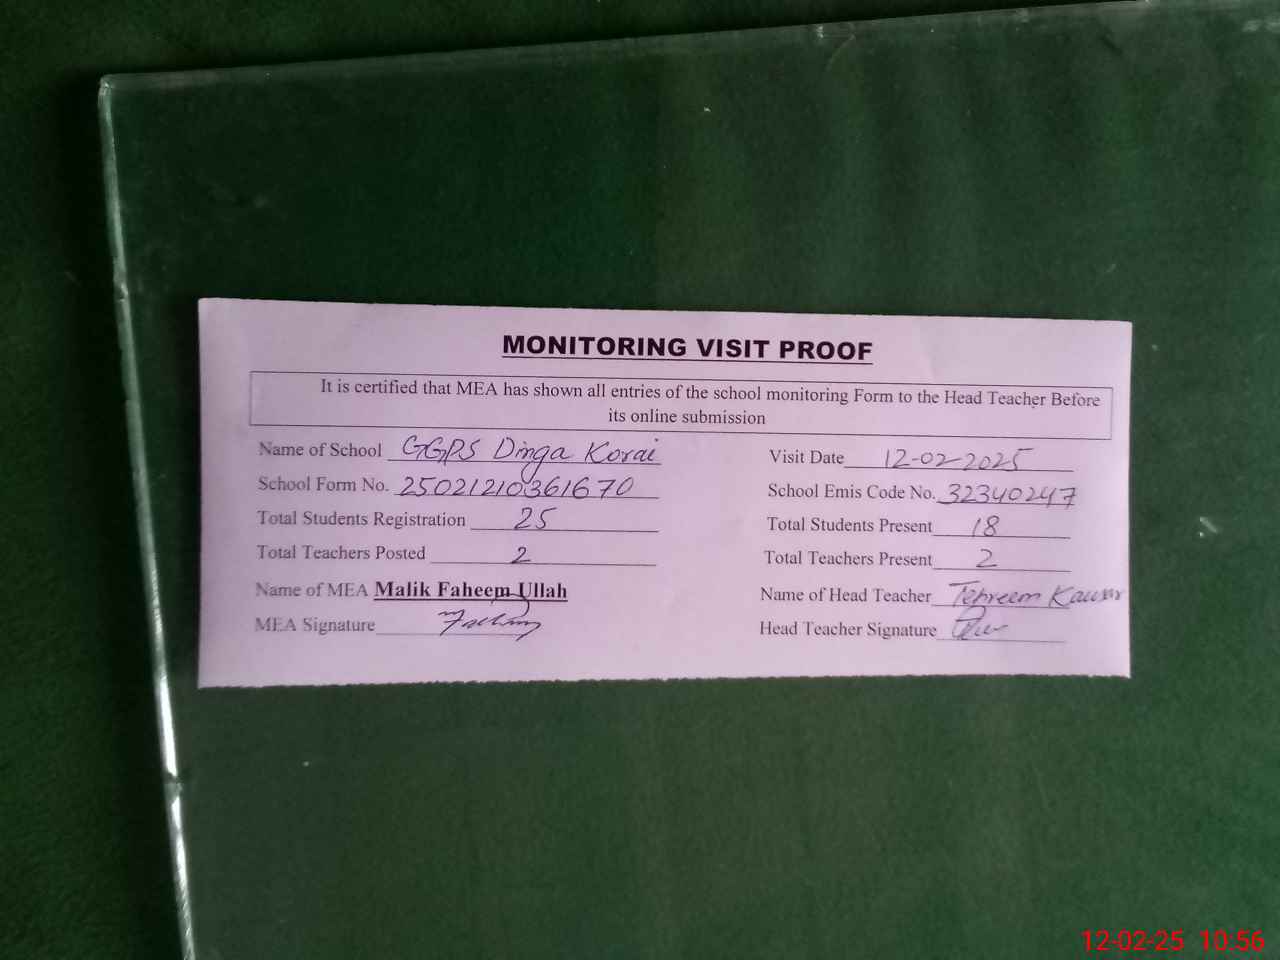 MONITORING VISIT PROOF
It is certified that MEA has shown all entries of the school monitoring Form to the Head Teacher Before
its online submission
Name of School GGPS Dinga Korai Visit Date 12-02-2025
School Form No. 25021210361670 School Emis Code No. 32340247
Total Students Registration 25 Total Students Present 18
Total Teachers Posted 2 Total Teachers Present 2
Name of MEA Malik Faheem Ullah Name of Head Teacher Tehreem Kausar
MEA Signature Head Teacher Signature
12-02-25 10:56